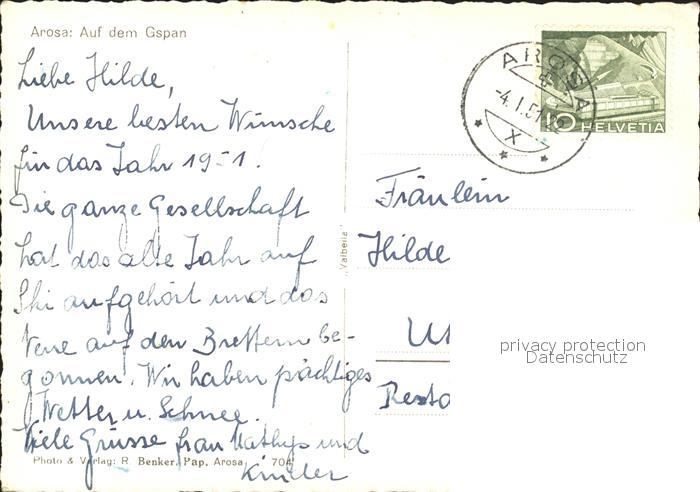 Arosa: Auf dem Gspan
Liebe Hilde,
Unsere besten Wünsche
für das Jahr 1951.
Die ganze Gesellschaft
hat das alte Jahr auf
Ski aufgehört und das
Neue auf den Brettern be-
gonnen. Wir haben prächtiges
Wetter u. Schnee.
Viele Grüsse frau Mathys und
Kinder
Photo & Verlag: R. Benker, Pap. Arosa 704
„Valbella"
AROSA
-4.I.51
X
10 HELVETIA
Fräulein
Hilde
privacy protection
Datenschutz